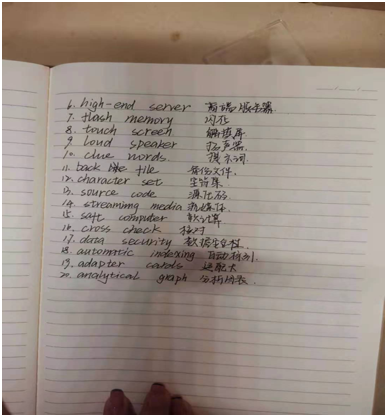 6. high-end server 高端服务器
7. flash memory 闪存
8. touch screen 触摸屏
9. loud speaker 扬声器
10. clue words. 提示词
11. back file 备份文件.
12. character set 字符集
13. source code 源代码
14. streaming media 流媒体
15. soft computer 软计算
16. cross check 核对
17. data security 数据安全性.
18. automatic indexing 自动标引.
19. adapter cards 适配卡
20. analytical graph 分析图表.